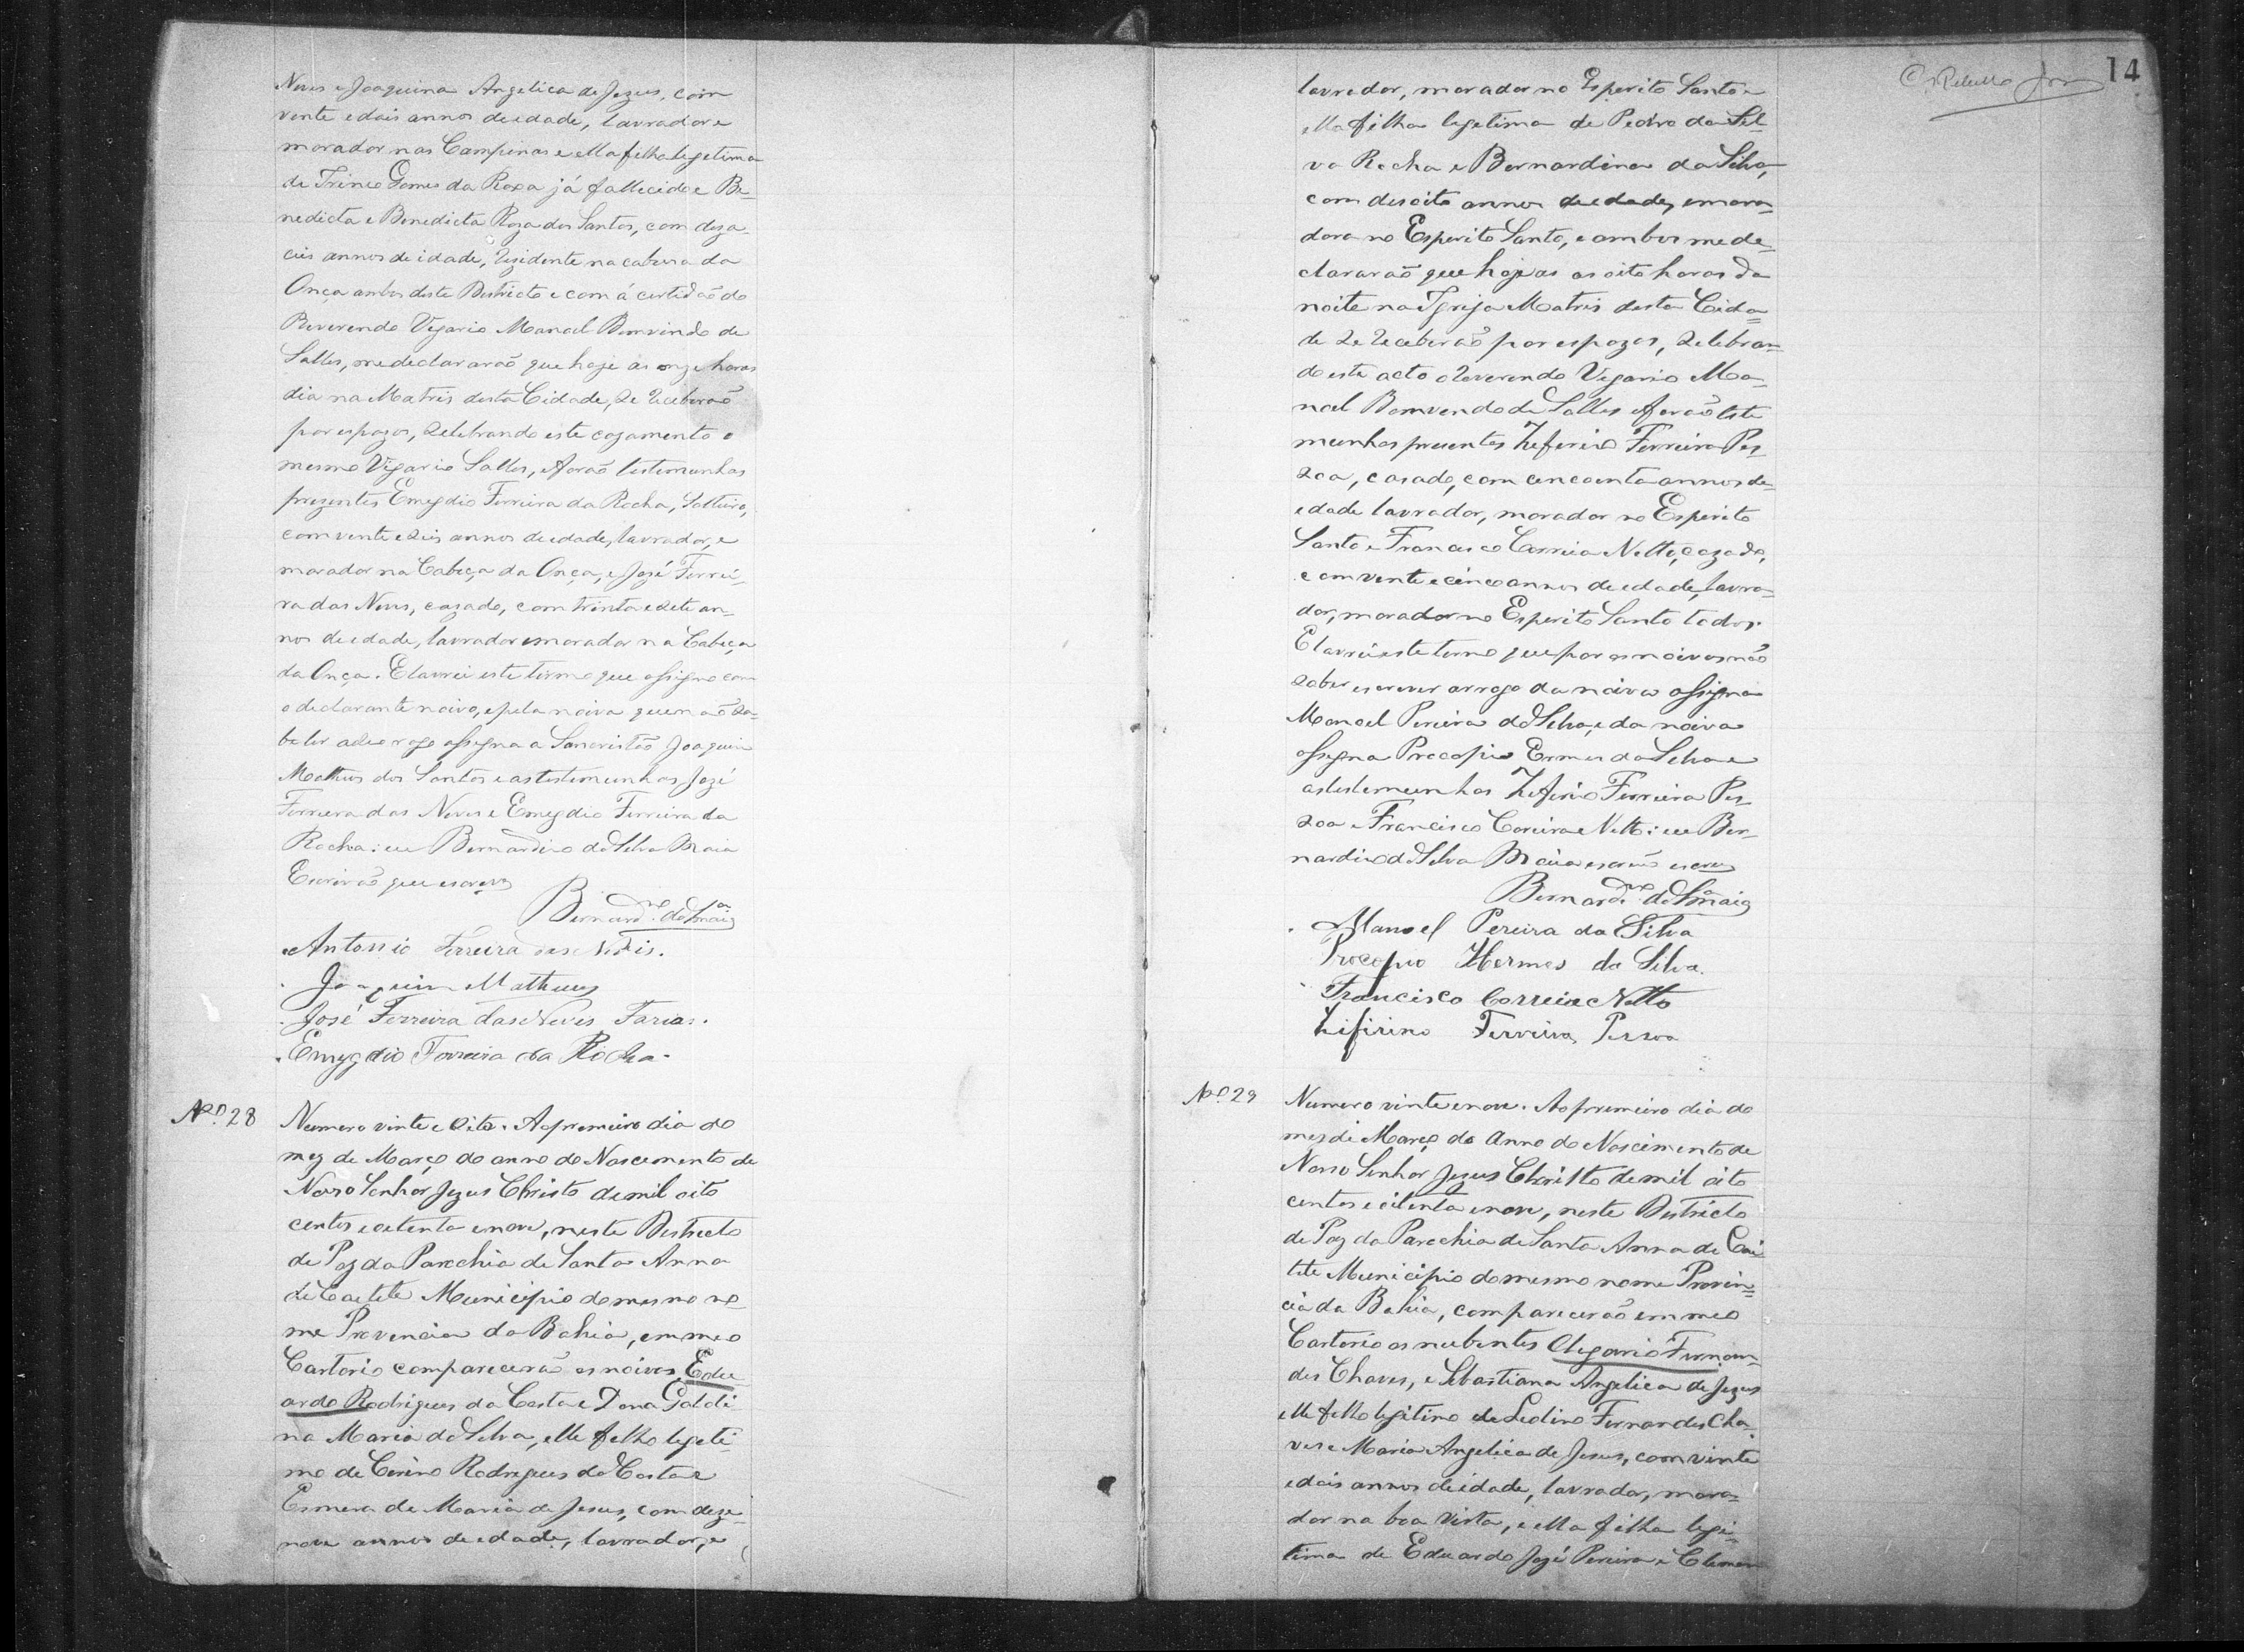 Neves e Joaquina Angelica de Jezus, com
vente e dois annos de edade, lavrador e
morador nas Campinas e ella filha legetima
de Irineo Gomes da Roxa já fallecido e Be-
nedicta e Benedicta Roza dos Santos, com deza-
ceis annos de idade, rezidente na cabesa da
Onça ambos deste Destricto e com á certidão do
Reverendo Vegario Manoel Bemvindo de
Salles, me declararão que hoje as onze horas
dia na Matris desta Cidade, se receberão
por espozos, selebrando este cazamento o
mesmo Vigario Salles, e forão testemunhas
prezentes Emegdio Ferreira da Rocha, Solteiro,
com vente e seis annos de edade, lavrador, e
morador na Cabeça da Onça, e Jozé Ferrei-
ra das Neves, cazado, com trinta e sete an-
nos de edade, lavrador e morador na Cabeça
da Onça. E lavrei este termo que assigno com
o declarante noivo, e pela noiva que não sa-
be ler a seo rogo assegna a Sancristão Joaquim
Matheus dos Santos e as testemunhas Jozé
Ferreira das Neves e Emegdio Ferreira da
Rocha: eu Bernardino da Selva Maia
Escrivão que escrevy
Bernard.no da S.a Maia
Antonio Ferreira das Neves.
Joaquim Matheus
José Ferreira das Neves Farias.
Emygdio Ferreira da Rocha.
N.o 28
Numero vinte e Oito. Ao premeiro dia do
mez de Março do anno do Nascemento de
Nosso Senhor Jezus Christo de mil oito
centos e oetenta e nove, neste Destrecto
de Paz da Parochia de Santa Anna
de Caeteté Municipio do mesmo no
me Provencia da Bahia, em meo
Cartorio comparecerão os noivos Edu
ardo Rodrigues da Costa e Dona Galdi
na Maria da Selva, elle filho legeti
mo de Cirino Rodrigues da Costa e
Esmera da Maria de Jesus, com deze-
nove annos de edade, lavrador, e
14
lavrador, morador no Esperito Santo e
ella filha legetima de Pedro da Sil-
va Rocha e Bernardina da Selva,
com desoito annos de edade, e mora-
dora no Esperito Santo, e ambos me de-
clararão que hoje as as oito horas da
noite na Igreja Matris desta Cida-
de se receberão por espozos, selebran-
do este acto o Reverendo Vegario Ma-
noel Bemvendo de Salles e forão teste
munhas presentes Zeferino Ferreira Pes-
soa, casado, com cencoenta annos de
edade lavrador, morador no Esperito
Santo e Francisco Correia Netto, cazado,
com vente e cinco annos de edade, lavra-
dor, morador no Esperito Santo todos.
E lavrei este termo que por os noivos não
saber escrever a rogo da noivo assigna
Manoel Pereira da Selva, e da noiva
assegna Procopio Ermes da Selva e
as testemunhas Zeferino Ferreira Pes-
soa e Francisco Correira Netto: eu Ber-
nardino da Selva Maia escrivão escrevy
Bernard.no da S.a Maia
Manoel Pereira da Silva
Procopio Hermes da Silva.
Francisco Correia Netto
Zifirino Ferreira Pessoa
N.o 29
Numero vinte e nove. Ao premeiro dia do
mez de Março do Anno do Nascimento de
Nosso Senhor Jezus Christto de mil oito
centos e oitenta e nove, neste Destricto
de Paz da Parochia de Santa Anna de Cai
tité Municipio do mesmo nome Provin-
cia da Bahia, comparecerão em meo
Cartorio os nubentes Olegario Fernan-
des Chaves, e Sebastiana Angelica de Jezus
elle filho legitimo de Liolino Fernandes Cha-
ves e Maria Angelica de Jesus, com vinte
e dois annos de idade, lavrador, mora-
dor na boa Vista, e ella filha legi-
tima de Eduardo Jozé Pereira e Clemen